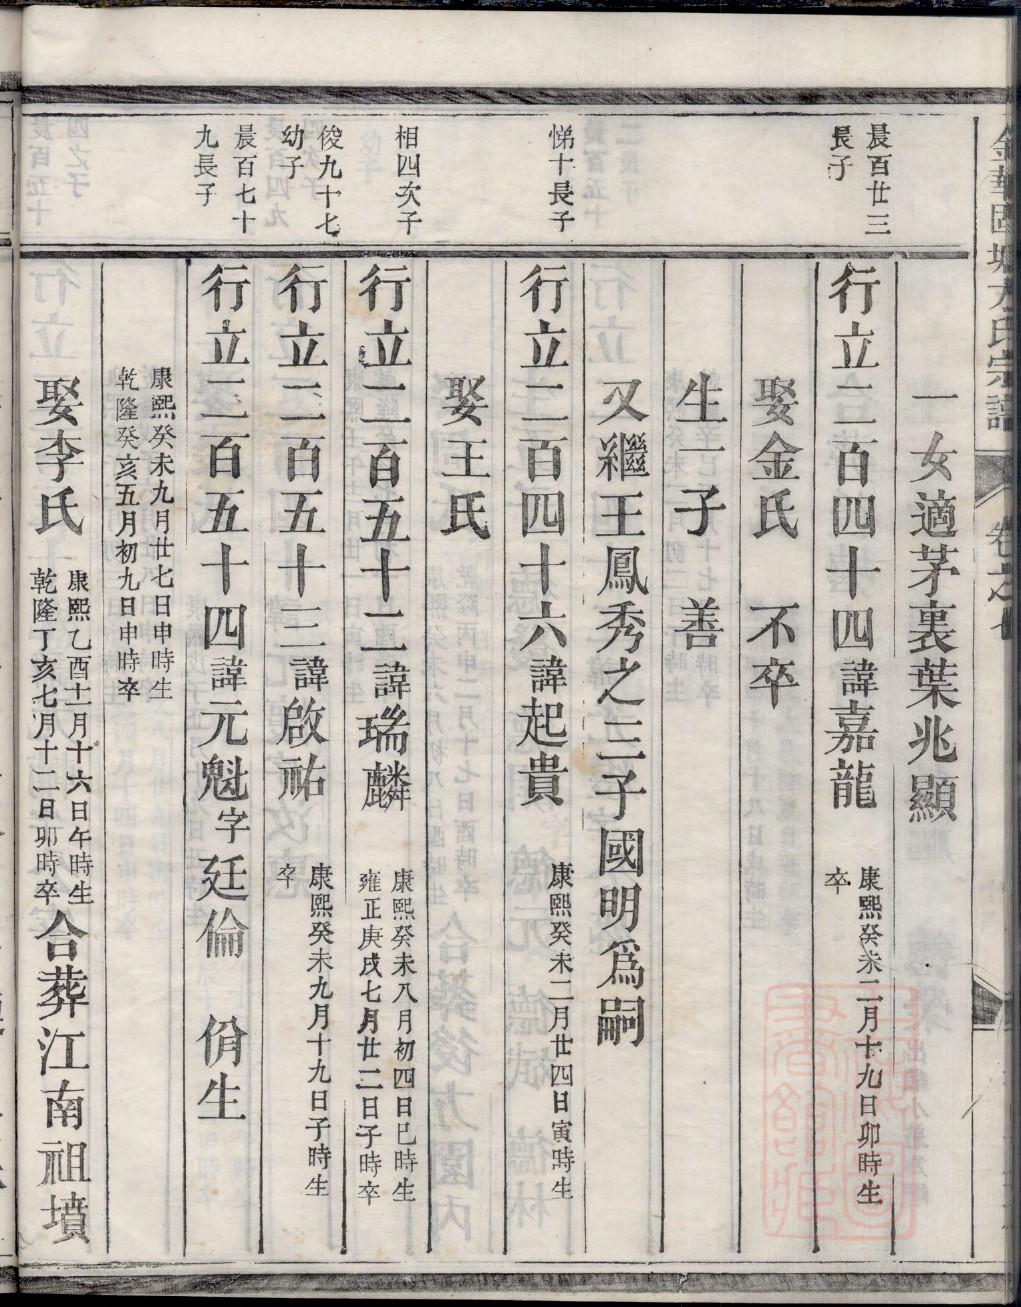 金華
氏宗譜
卷之七
一女適茅裏葉兆顯
晨百廿三
長子
行立二百四十四諱嘉龍
康熙癸未二月十九日卯時生
卒
娶金氏 不卒
生一子 善
又繼王鳳秀之三子國明爲嗣
悌十長子
行立二百四十六諱起貴
康熙癸未二月廿四日寅時生
娶王氏
相四次子
行立二百五十二諱瑞麟
康熙癸未八月初四日巳時生
雍正庚戌七月廿二日子時卒
俊九十七
幼子
行立二百五十三諱啟祐
康熙癸未九月十九日子時生
卒
晨百七十
九長子
行立二百五十四諱元魁字廷倫 佾生
康熙癸未九月廿七日申時生
乾隆癸亥五月初九日申時卒
娶李氏
康熙乙酉十一月十六日午時生
乾隆丁亥七月十二日卯時卒
合葬江南祖墳